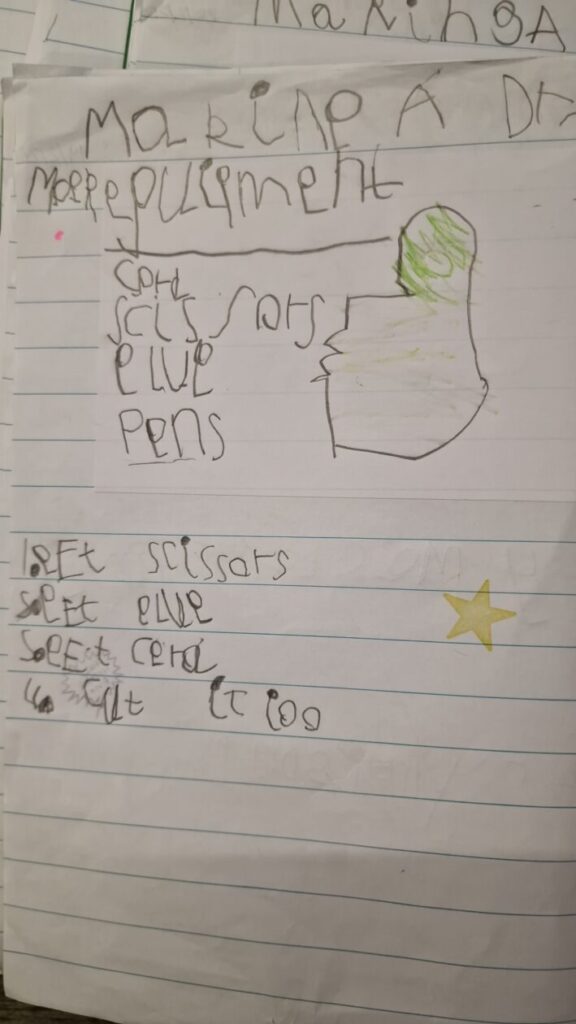 MakingA
Making A
epuigment
card
scissors
glue
pens
1. get scissors
2. get glue
3. get card
4. cut it